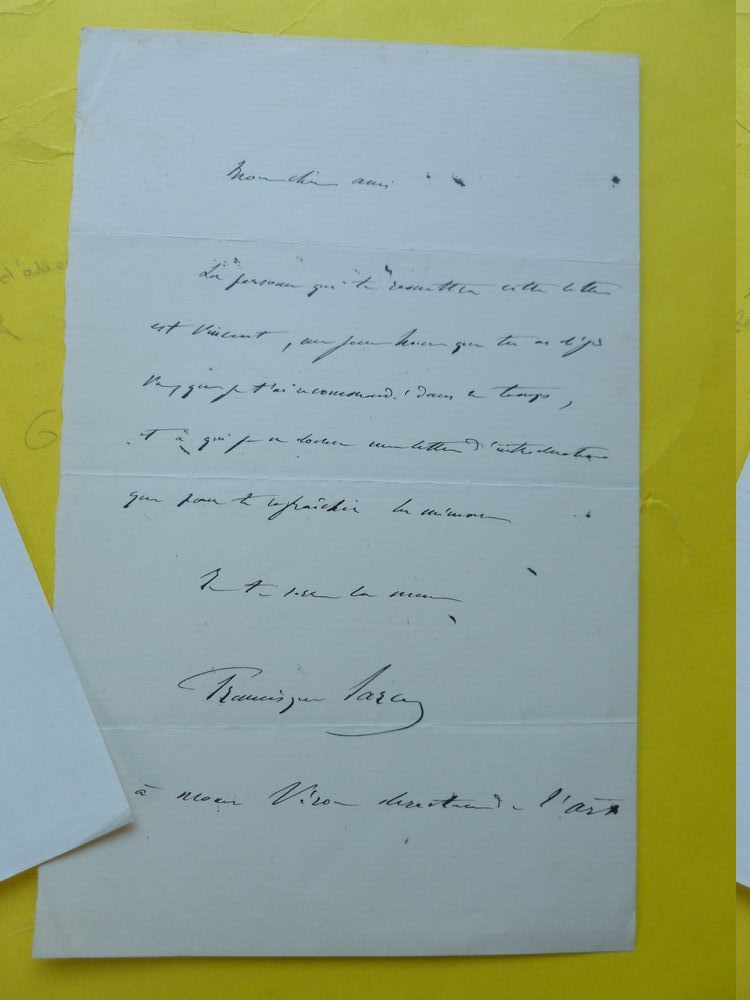 Mon cher ami
La personne qui te remettra cette lettre
est Vincent, un jeune homme que tu as déjà
vu, que je t'ai recommandé dans le temps,
et à qui je ne donne une lettre d'introduction
que pour te rafraîchir la mémoire
Je te serre la main
Francisque Sarcey
à mon Véron directeur de l'art
d'
G